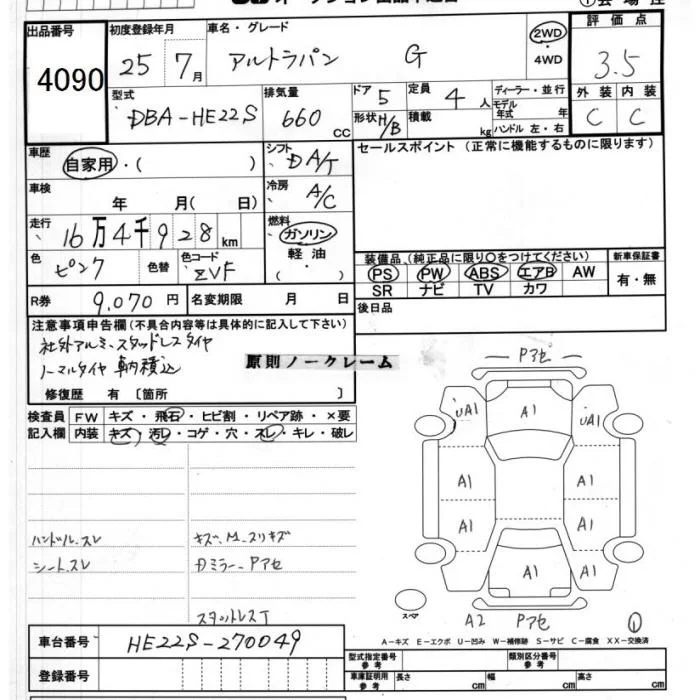 出品番号
4090
初度登録年月
25 7月
車名・グレード
アルトラパン G
2WD
・
4WD
評価点
3.5
型式
DBA-HE22S
排気量
660 CC
ドア 5
形状 H/B
定員 4 人
積載 kg
ディーラー・並行
モデル年式 年
ハンドル 左・右
外装 内装
C C
車歴
自家用・( )
シフト
DA/T
セールスポイント(正常に機能するものに限ります)
車検
年 月( 日)
冷房
A/C
走行
16万4千928km
燃料
ガソリン
軽油
・( )
色
ピンク
色替
色コード
ZVF
装備品(純正品に限り○をつけてください)
PS PW ABS エアB AW
SR ナビ TV カワ
新車保証書
有・無
R券 9,070円
名変期限 月 日
後日品
注意事項申告欄(不具合内容等は具体的に記入して下さい)
社外アルミ・スタッドレスタイヤ
ノーマルタイヤ 車内積込
原則ノークレーム
修復歴 有〔箇所 〕
検査員
記入欄
FW キズ・飛石・ヒビ割・リペア跡・×要
内装 キズ・汚レ・コゲ・穴・スレ・キレ・破レ
ハンドル.スレ
シート.スレ
キズ、M.スリキズ
Pアセ
Pアセ
UA1 A1 UA1
A1 A1
A1 A1
A1
スペア
A2 Pアセ
①
A-キズ E-エクボ U-凹み W-補修跡 S-サビ C-腐食 XX-交換済
車台番号 HE22S-270049
登録番号
型式指定番号
参考
類別区分番号
参考
車庫証明用
参考
長さ cm
幅 cm
高さ cm